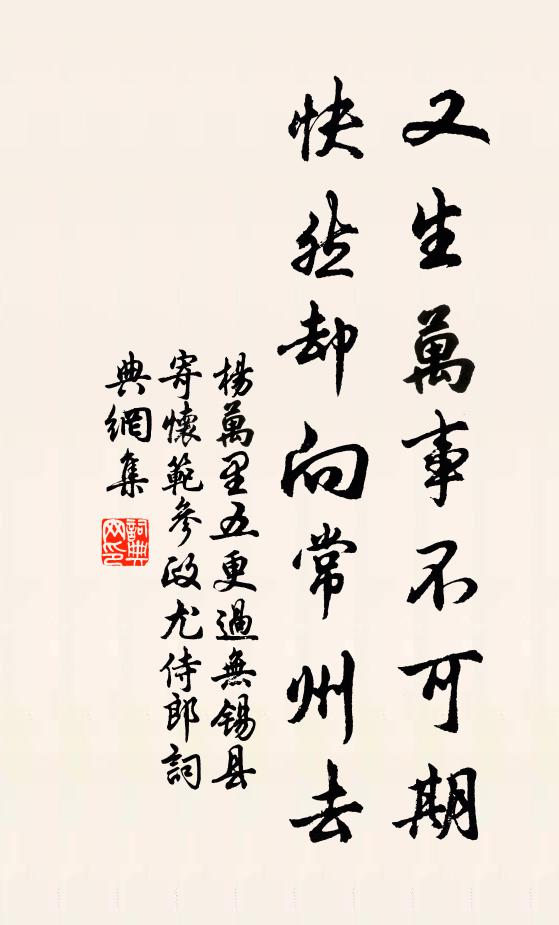 又生萬事不可期
快然却向常州去
楊萬里五更過無錫县
寄懷範參政尤侍郎詞
典網集
詞典网印